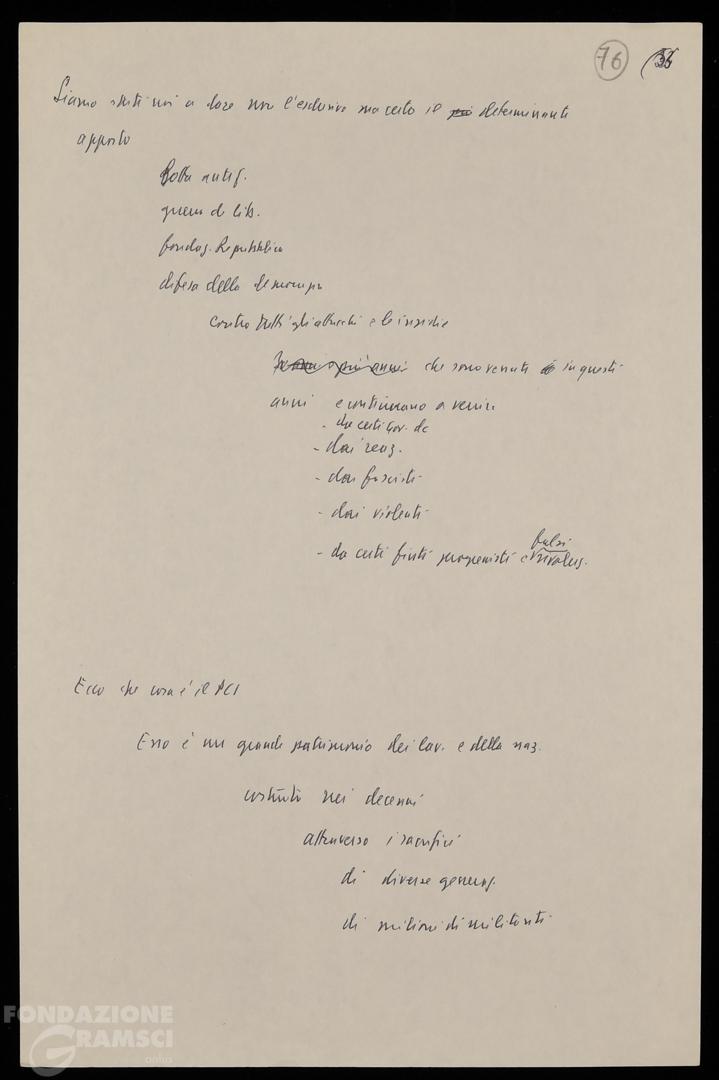 76 (36
Siamo stati noi a dare non l'esclusivo ma certo il più determinante
apporto
lotta antif.
guerra di lib.
fondaz. Repubblica
difesa della democrazia
contro tutti gli attacchi e le insidie
che sono venute in questi
anni e continuano a venire
- da certi gov. dc
- dai reaz.
- dai fascisti
- dai violenti
- da certi finti progressisti e falsi rivoluz.
Ecco che cosa è il PCI
Esso è un grande patrimonio dei lav. e della naz.
costruito nei decenni
attraverso i sacrifici
di diverse generaz.
di milioni di militanti
FONDAZIONE
GRAMSCI
onlus